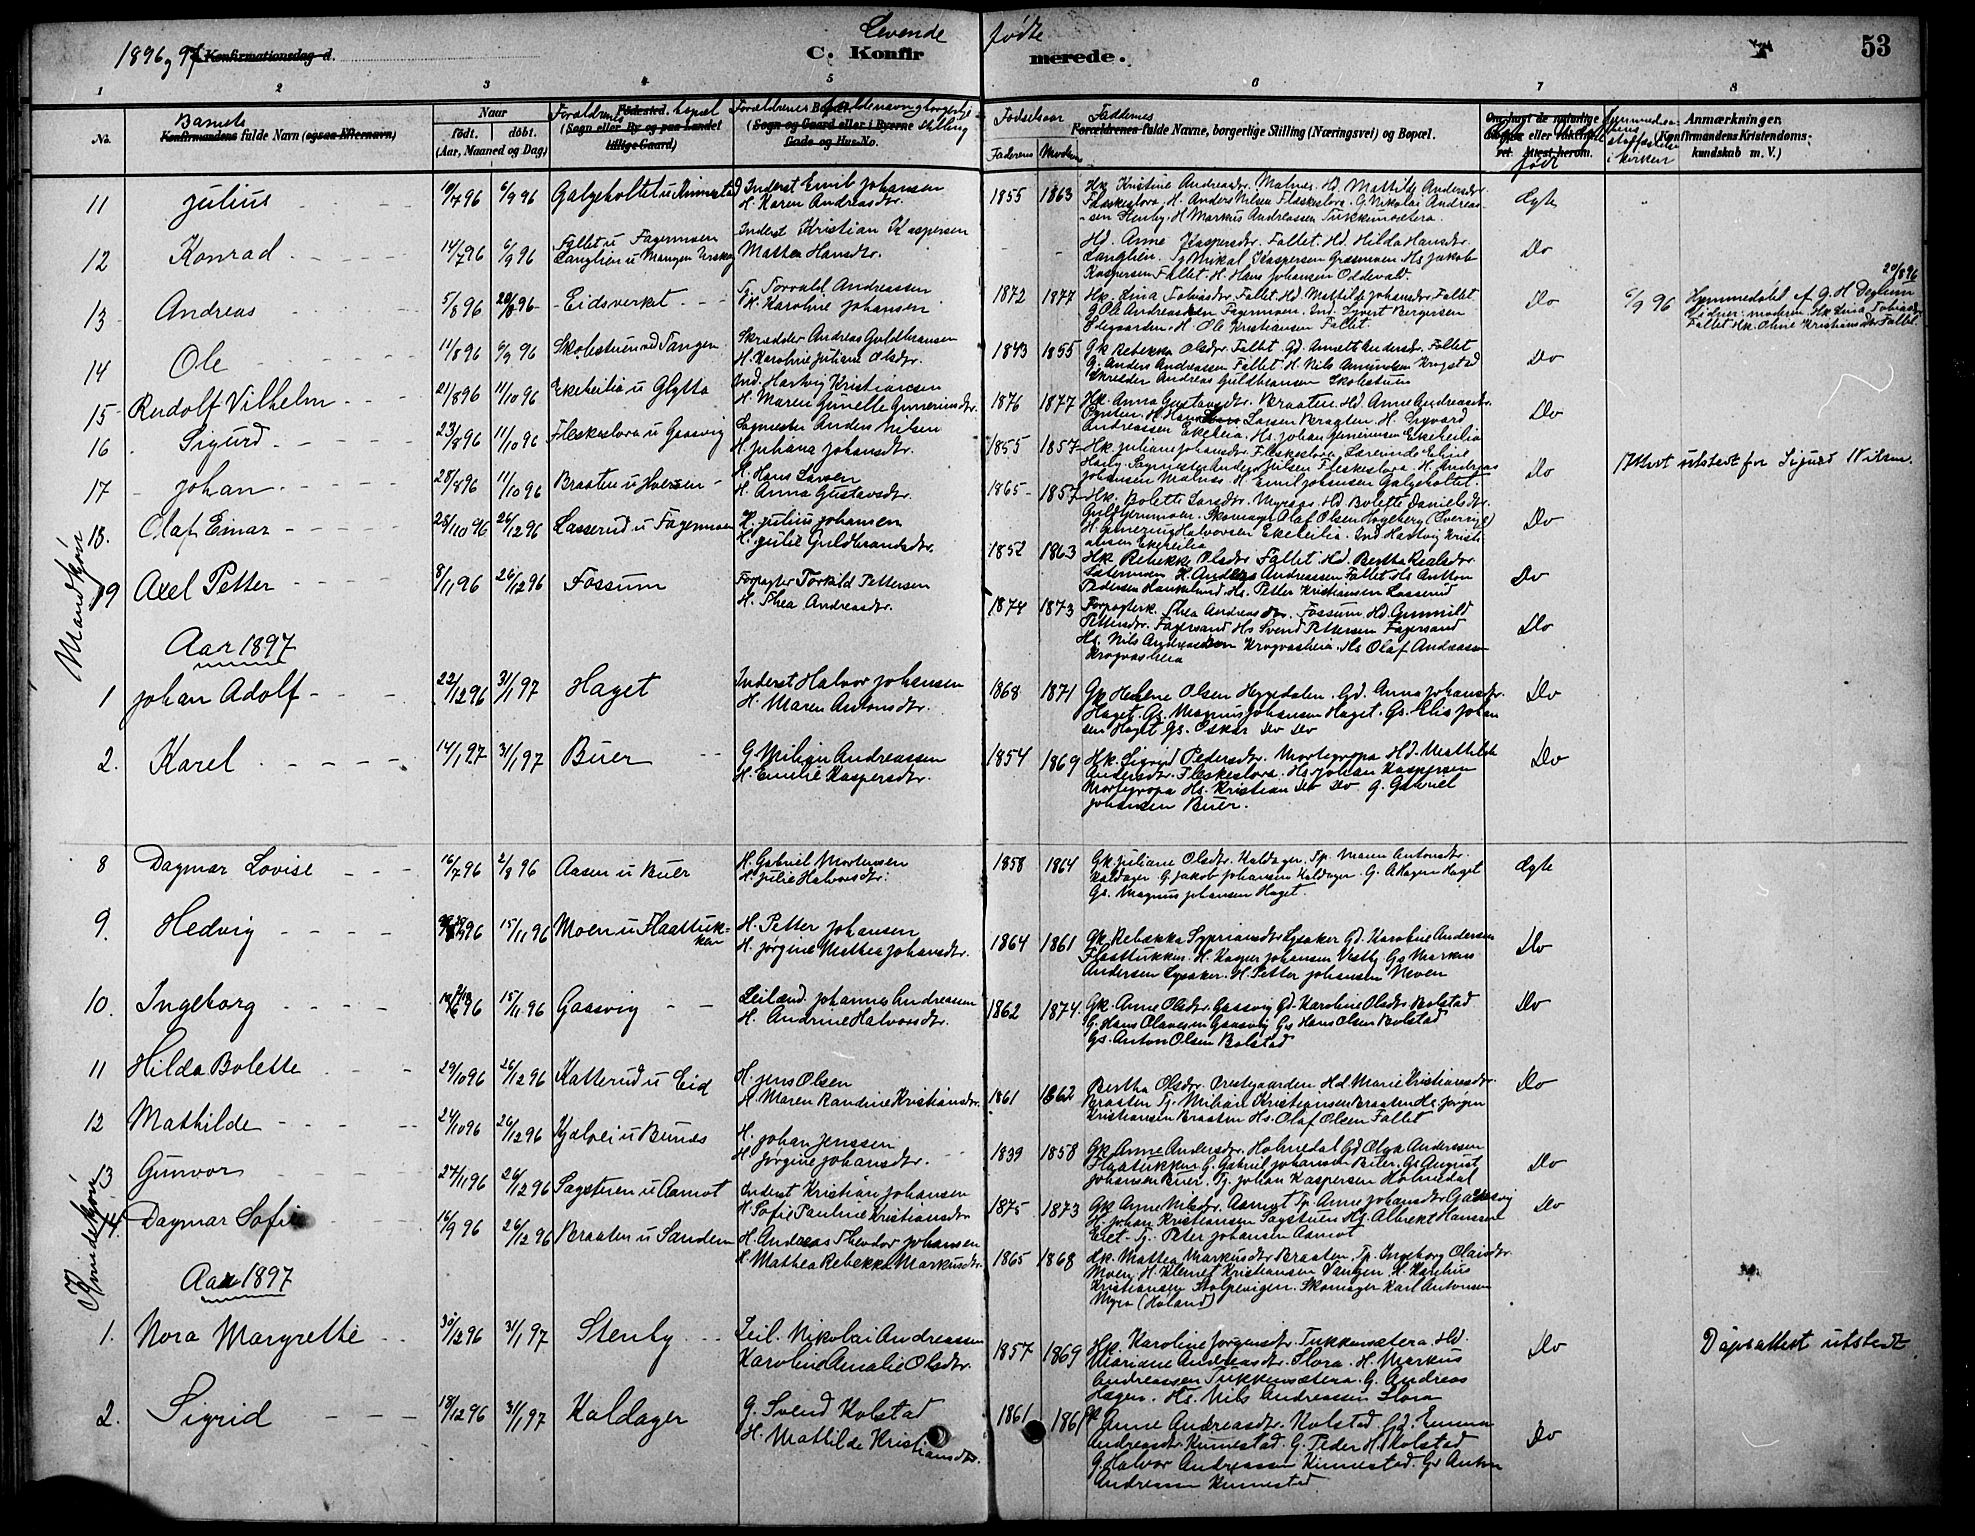 1896 og 97
Konfirmationsdag d.
Levende fødte
C. Konfirmerede.
53
1 2 3 4 5 6 7 8
No.
Barnets
Konfirmandens fulde Navn (ogsaa Efternavn)
Naar
født. døbt.
(Aar, Maaned og Dag)
Forældrenes Fødested. bopæl
(Sogn eller By og paa Landet tillige Gaard)
Forældrenes Bopæl. fulde navn og borgerlige Stilling
(Sogn og Gaard eller i Byerne Gade og Hus-No.
Fødselsaar
Faderens Moderens
Faddernes
Forældrenes fulde Navne, borgerlige Stilling (Næringsvei) og Bopæl.
Anmærkninger.
(Konfirmandens Kristendoms-
kundskab m. V.)
Mandkjøn
11 Julius 10/7 96 6/9 96 Galgeholtet u Kinnestad Inderst Emil Johansen
H. Karen Andreasdtr. 1855 1863 Hk Kristine Andreasdtr. Malnes. Hd. Mathilde Andersdtr.
Flæskeslora. H. Anders Nilsen Flæskeslora. G. Nikolai Andreas-
sen Stenby. H Markus Andreassen Tukkensætera. Ægte
12 Konrad 14/7 96 6/9 96 Fallet u Fagermoen
Langlien u Mangen Urskog Inderst Kristian Kaspersen
Mathea Hansdtr. Hd. Anne Kaspersdtr. Fallet. Hd. Hilda Hansdtr.
Langlien. Tj. Mikal Kaspersen Græsmoen Hs Jakob
Kaspersen Fallet. H. Hans Johansen Oldevald. Do
13 Andreas 5/8 96 20/8 96 Eidsverket Tj. Torvald Andreassen
Pk. Karoline Johansen 1872 1877 Hk. Lina Tobiasdtr. Fallet. Hd. Mathilde Johansdtr. Fallet.
G Ole Andreassen Fagermoen. Ind. Syvert Bergersen
Ødegaarden. H Ole Kristiansen Fallet Do 6/9 96 20/8 96
Hjemmedøbt af G. H Deglum
Vidner: moderen Hk Lina Tobiasdtr
Fallet Hk. Oline Kristiansdtr Fallet.
14 Ole 11/8 96 6/9 96 Skolestuen ved Tangen Skrædder Andreas Guldbransen
H. Karoline Juliane Olsdtr. 1843 1855 Gk Rebekka Olsdtr. Fallet. Gd. Anette Andersdtr. Fallet
G. Anders Andreassen Fallet. H. Nils Amundsen Krogstad
Skredder Andreas Guldbransen Skolestuen Do
15 Rudolf Vilhelm 21/8 96 11/10 96 Ekeheilia u Glytta Ind. Hartvig Kristiansen
H. Maren Gunelle Gunerius dtr. 1876 1877 Hk. Anna Gustavsdtr. Braaten. Hd. Anne Andreasdtr.
Pynten. H Hans Larsen Braaten. H. Sigvard
Andreassen Ekeheia. Hs. Johan Gunerinsen Ekeheilia Do
16 Sigurd 23/8 96 11/10 96 Fleskeslora u Gaasvig Sagmester Anders Nilsen
H. Juliana Johansdtr. 1855 1857 Hk Juliane Johansdtr. Fleskeslora. Lærerinde Emilie
Harby. Sagmester Anders Nilsen Fleskeslora. H. Andreas
Johansen Malnes. H. Emil Johansen Galgeholtet. Do Attest utstedt for Sigurd Nilsen.
17 Johan 28/8 96 11/10 96 Braaten u Iversen H. Hans Larsen
H. Anna Gustavsdtr. 1865 1857 Hk. Bolette Larsdtr. Myrags. Hd Bolette Danielsdtr.
Guldhjernmoen. Skomager Olaf Olsen Ingeberg
H. Gunerius Halvorsen Ekeheilia. Ind Hartvig Kristi-
ansen Ekeheilia Do
18. Olaf Einar 28/10 96 26/12 96 Lasserud u Fagermoen H. Julius Johansen
H. Julie Guldbrandsdtr. 1852 1863 Hk. Rebekke Olsdtr Fallet Hd. Bertha
H. Anders Andreassen Fallet Hs Anton
Pedersen Haukelund Hs. Petter Kristiansen Lasserud Do
19 Axel Petter 8/11 96 26/12 96 Fossum Forpagter Torkild Pettersen
H. Thea Andreasdtr. 1874 1873 Forpagterk. Thea Andreasdtr. Fossum Hd. Gunnild
Pettersdtr. Fagersand Hs Svend Pettersen Fagersand
Hs. Nils Andreassen Krogvasheia. Hs Olaf Andreassen
Krogvasheia Do
Aar 1897
1 Johan Adolf 22/12 96 31/1 97 Haget Inderst Halvor Johansen
H. Maren Antonsdtr. 1868 1871 Gp Helene Olsen Heggedalen. Gd. Anna Johansdtr.
Haget. Gs. Magnus Johansen Haget. Gs. Elias Johan
sen Haget Gs. Oskar Do Do Do
2. Karel 14/1 97 31/1 97 Buer G. Milian Andreassen
H. Emilie Kaspersdtr. 1854 1869 Hk. Sigrid Pedersdtr. Mortegropa Hd. Mathilde
Andersdtr. Fleskeslora. Hs. Johan Kaspersen
Mortegropa Hs. Kristian Do Do G. Gabriel
Johansen Buer. Do
Kvindekjøn
8 Dagmar Lovise 16/7 96 2/8 96 Aasen u Buer H. Gabriel Mortensen
H. Julie Halvorsdtr. 1858 1864 Gk Juliane Olsdtr. Kaldager. Tp. Maren Antonsdtr.
Kaldager. G. Jakob Johansen Kaldager. G. A Hagen Haget
Gs. Magnus Johansen Haget. Ægte
9. Hedvig 96 15/11 96 Moen u Flaattuk-
ken H. Petter Johansen
H. Jørgine Mathea Johansdtr. 1864 1861 Gk. Rebækka Sypriansdtr Lysaker Gd. Karoline Andersen
Flaattukken. H. Kasper Johansen Vestby. Gs Markus
Andersen Lysaker. H. Petter Johansen Moen Do
10. Ingeborg 96 15/11 96 Gaasvig Leilænd. Johannes Andreassen
H. Andrine Halvorsdtr. 1862 1874. Gk. Anne Olsdtr. Gaasvig Gd. Karoline Olsdtr Bolstad
G. Hans Olavesen Gaasvig Gs Hans Olsen Bolstad
Gs. Anton Olsen Bolstad Do
11 Hilda Bolette 29/10 96 26/12 96 Katterud u Eid H. Jens Olsen
H. Maren Randine Kristiansdtr. 1861 1862 Bertha Olsdtr. Østegaarden Hd. Marie Kristiansdtr.
Braaten Tj. Milian Kristiansen Braaten Hs. Jørgen
Kristiansen Braaten Hs. Olaf Olsen Fallet Do
12 Mathilde 24/10 96 26/12 96 Kjølvei u Bunes H. Johan Jenssen
H. Jørgine Johansdtr. 1839 1858 Gk Anne Andersdtr. Holmedal Gd Olga Andersen
Flaatukken G. Gabriel Johansen Buer. Gs August
Johansen Buer. Tj. Johan Kaspersen Holmedal Do
13 Gunvor 27/11 96 26/12 96 Sagstuen u Aamot Inderst Kristian Johansen
H. Sofie Pauline Kristiansdtr 1875 1873 Gk Anne Nilsdtr. Aamot Tp. Anne Johansdtr Gaasvig
H. Johan Kristiansen Sagstuen Hs. Albrekt Hanssen
Eiet. Tj. Peter Johansen Aamot Do
14. Dagmar Sofie 16/9 96 26/12 96 Braaten u Sandem H. Andreas Theodor Johansen
H Mathea Rebekka Markusdtr. 1865 1868 Hk. Mathea Markusdtr Braaten. Tp. Ingeborg Olaisdtr.
Moen H. Klemet Kristiansen Vangen. H. Karelius
Kristiansen Stolpevigen. Skomager Karl Antonsen
Myra (Høland)
Aar 1897
1. Nora Margrethe 30/12 96 31/1 97 Stenby Leil. Nikolai Andreassen
Karoline Amalie Olsdtr. 1857 1869 Hk. Karoline Jørgensdtr. Tukkensætera. Hd.
Mariane Andreasdtr. Slora. H. Markus
Andreassen Tukkensætera. G. Andreas
Hagen. Hs. Nils Andreassen Slora Do Dåpsattest utstedt
2. Sigrid 18/12 96 31/1 97 Kaldager G. Svend Kolstad
H. Mathilde Kristiansdtr. 1861 186 Gk Anne Andreasdtr. Kolstad. Gd. Emma
Andreasdtr Kinnestad. G. Peder H. Kolstad
G. Halvor Andreassen Kinnestad. Gs Anton
Andreassen Kinnestad Do